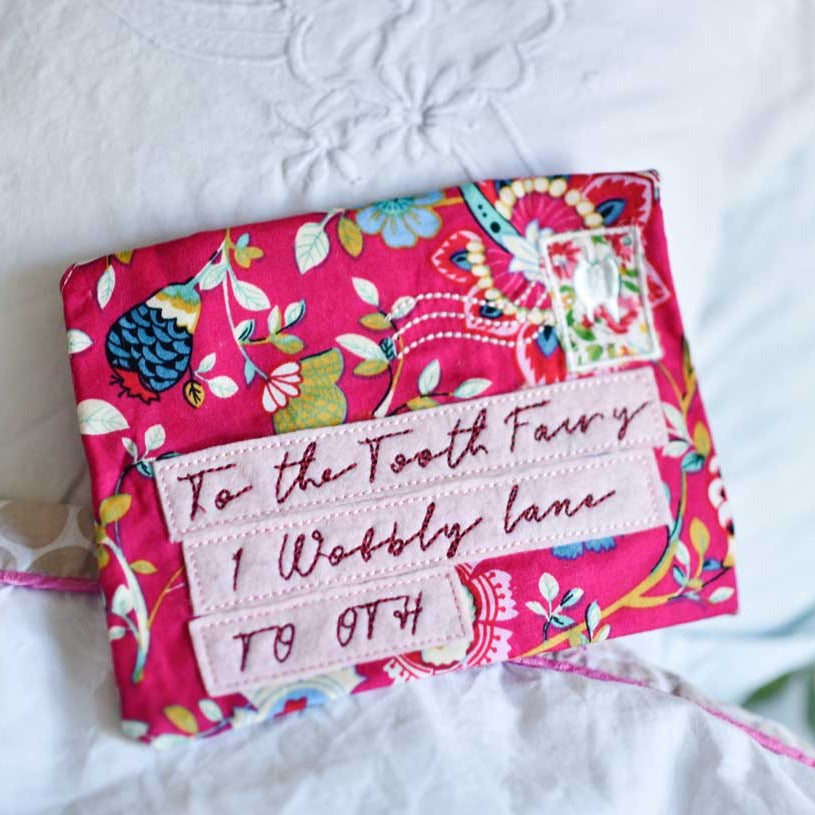 To the Tooth Fairy
1 Wobbly lane
TO OTH